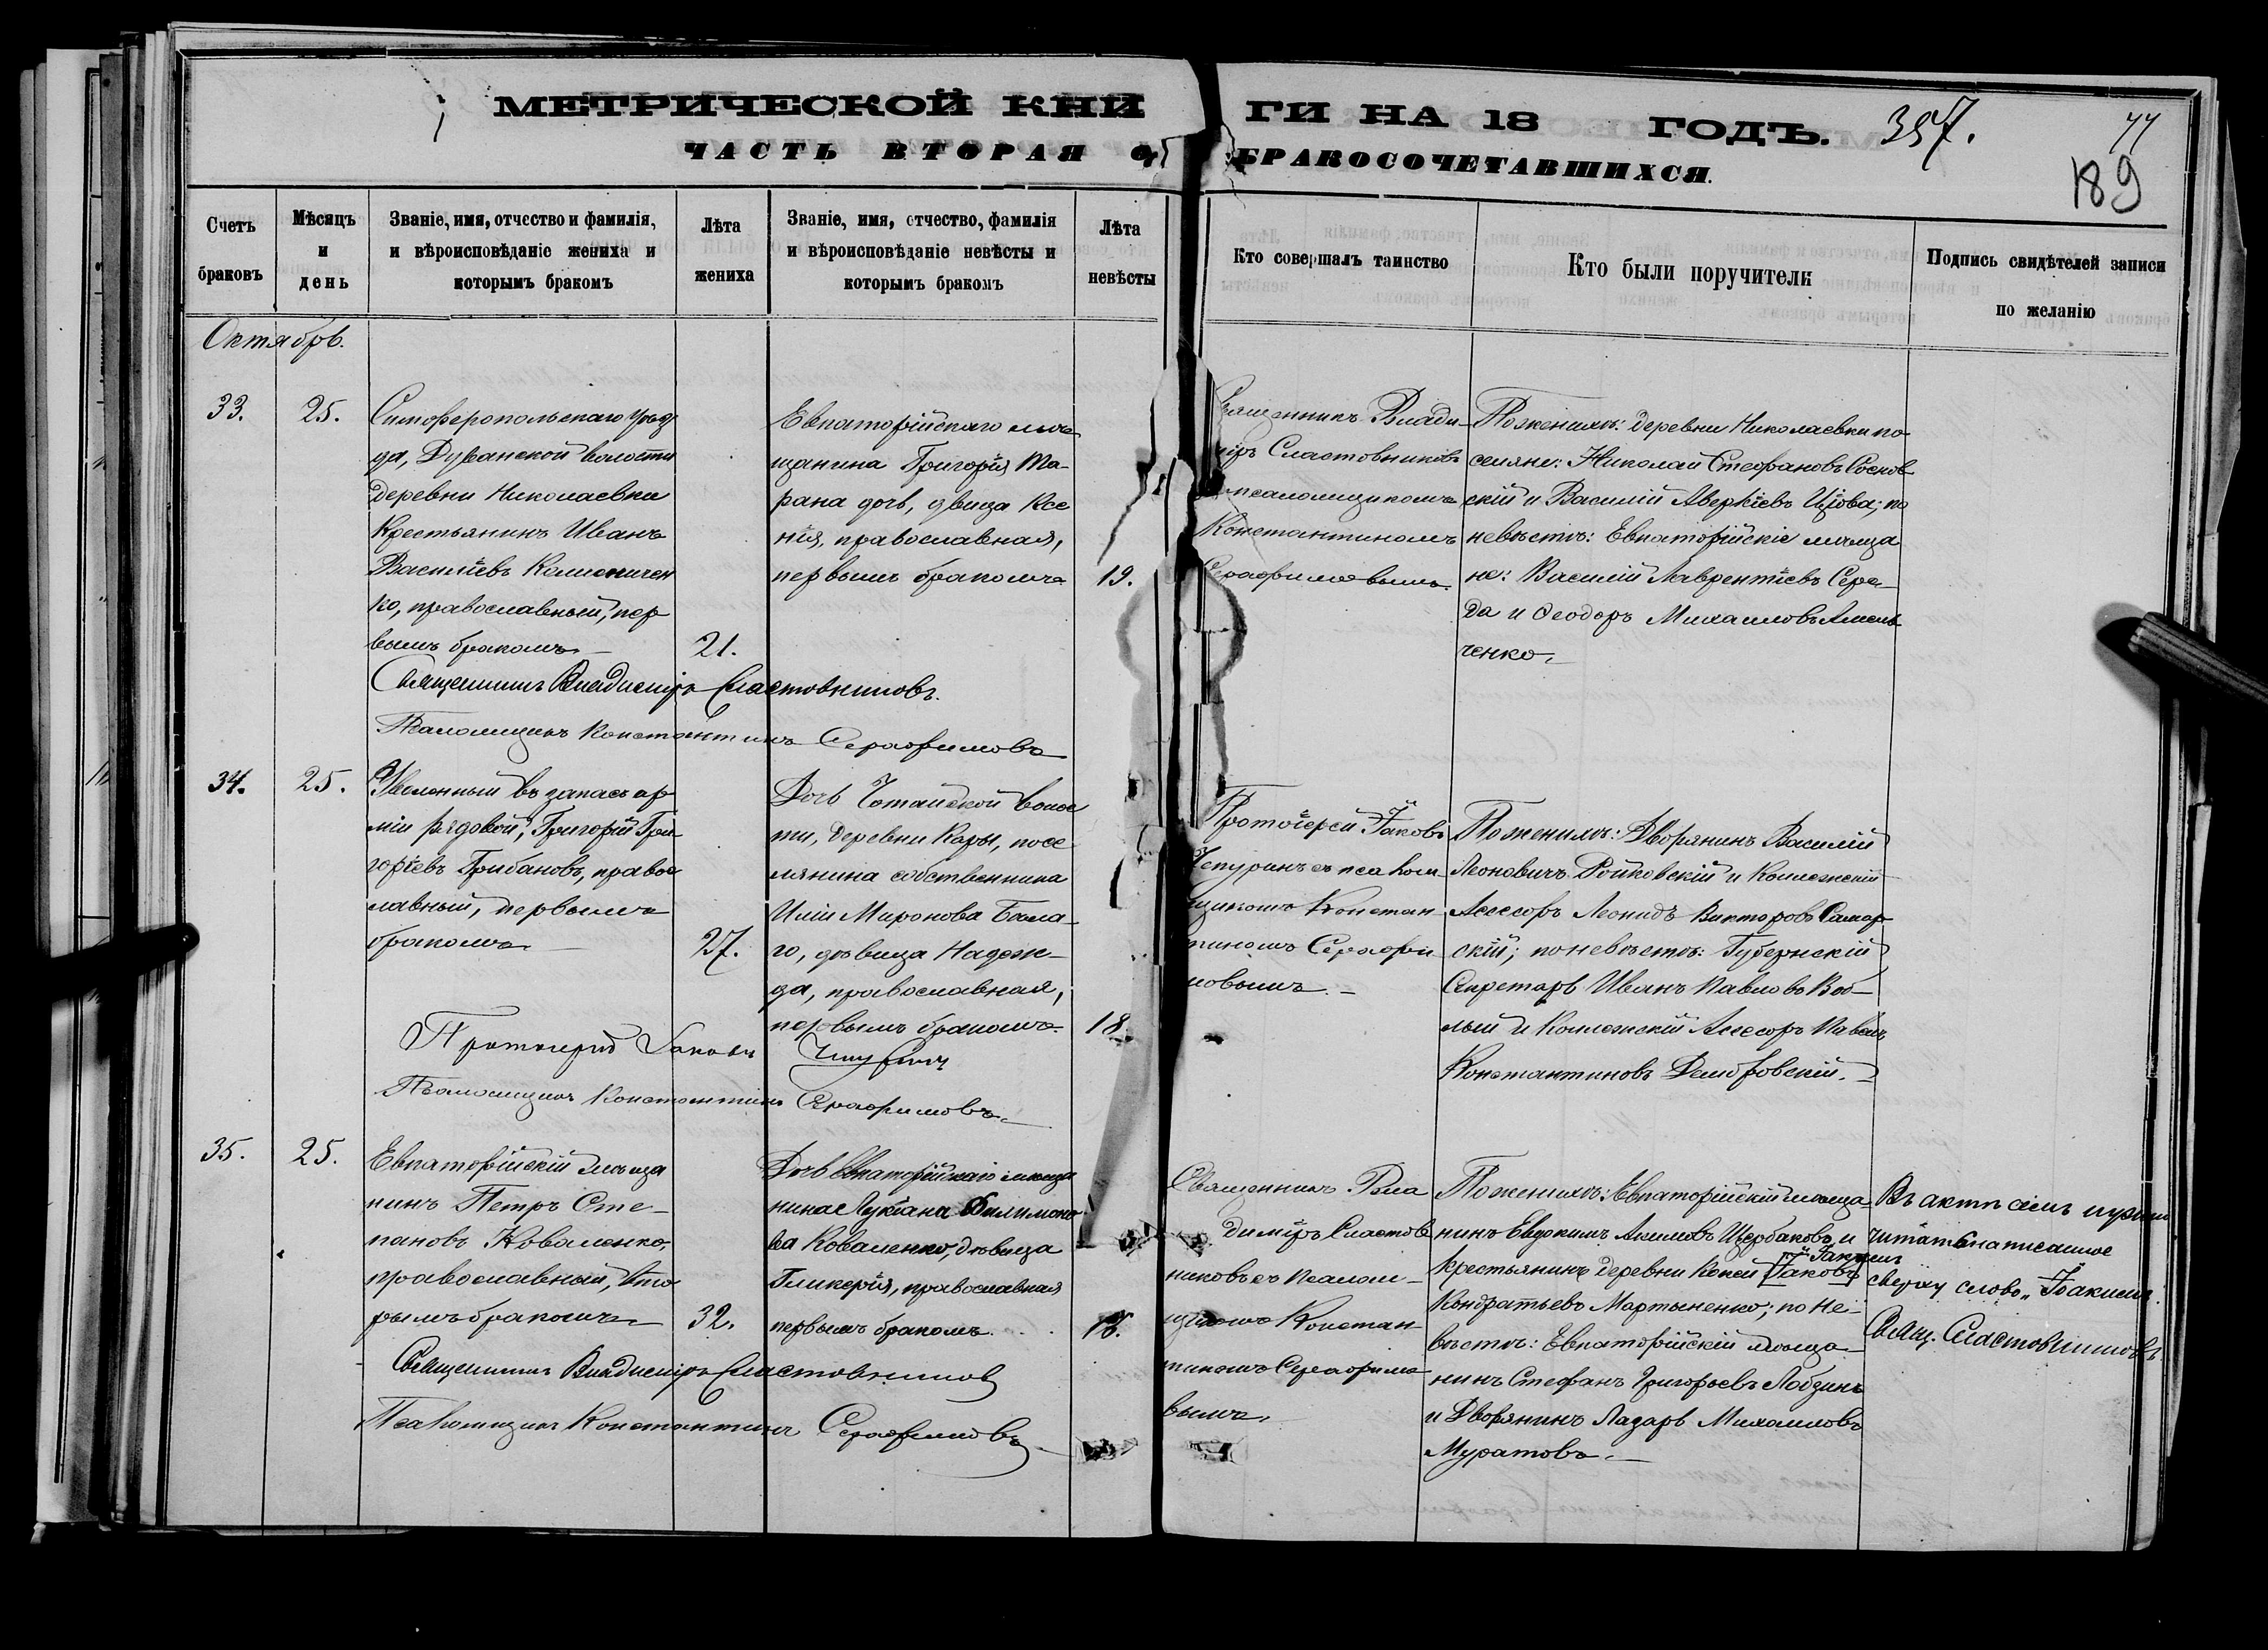 МЕТРИЧЕСКОЙ КНИ ГИ НА 18 ГОДЪ. 357.
77
189
ЧАСТЬ ВТОРАЯ О БРАКОСОЧЕТАВШИХСЯ.
Счетъ браковъ
Мѣсяцъ и день
Званіе, имя, отчество и фамилія,
и вѣроисповѣданіе жениха и
которымъ бракомъ
Лѣта жениха
Званіе, имя, отчество, фамилія
и вѣроисповѣданіе невѣсты и
которымъ бракомъ
Лѣта невѣсты
Кто совершалъ таинство
Кто были поручители
Подпись свидѣтелей записи
по желанію
Октябрь.
33.
25.
Симферопольскаго уѣз
да, Дуванской волости
деревни Николаевки
крестьянинъ Иванъ
Васильевъ
ко, православный, пер
вымъ бракомъ
21.
Евпаторійскаго мѣ
щанина Григорія Та-
рана дочь, дѣвица Ксе
нія, православная,
первымъ бракомъ
19.
Священникъ Влади
міръ Сластовниковъ
псаломщикомъ
Константиномъ
Серафимовымъ.
По женихѣ: деревни Николаевки по
селяне: Николай Стефановъ Соснов
скій и Василій Аверкіевъ по
невѣстѣ: Евпаторійскіе мѣща
не: Василій Лаврентіевъ Сере-
да и Ѳеодоръ Михаиловъ Амель
ченко.
Священникъ Владиміръ Сластовниковъ.
Псаломщикъ Константинъ Серафимовъ
34.
25.
Уволенный въ запасъ ар
міи рядовой, Григорій Гри
горіевъ Грибановъ, правос
лавный, первымъ
бракомъ
27.
Дочь Чотайской волос
ти, деревни Кары, посе
лянина собственника
Иліи Миронова Бала-
го, дѣвица Надеж-
да, православная,
первымъ бракомъ.
18.
Протоіерей Іаковъ
Чепуринъ съ псалом
щикомъ Констан
тиномъ Серафи
мовымъ.
По женихѣ: Дворянинъ Василій
Леоновичъ Ройковскій и Коллежскій
Асессоръ Леонидъ Викторовъ Самар
скій; по невѣстѣ: Губернскій
Секретарь Иванъ Павловъ
и Коллежскій Асессоръ Павелъ
Константиновъ Домбровскій.
Протоіерей Іаковъ Чепуринъ
Псаломщикъ Константинъ Серафимовъ
35.
25.
Евпаторійскій мѣща
нинъ Петръ Сте-
пановъ Коваленко,
православный, вто
рымъ бракомъ
32.
Дочь Евпаторійскаго мѣща
нина Лукіана Филимоно
ва Коваленко, дѣвица
Гликерія, православная
первымъ бракомъ.
18.
Священникъ Вла
диміръ Сластов
никовъ съ псалом-
щикомъ Констан
тиномъ Серафимо
вымъ.
По женихѣ: Евпаторійскій мѣща-
нинъ Евдокимъ Акимовъ Щербаковъ и
Іоакимъ
крестьянинъ деревни Конси [Іаковъ]
Кондратьевъ Мартыненко; по не-
вѣстѣ: Евпаторійскій мѣща-
нинъ Стефанъ Григорьевъ Лобзинъ
и Дворянинъ Лазарь Михаиловъ
Муратовъ.
Въ актѣ семъ нужно
читать написанное
сверху слово „Іоакимъ".
Свящ. Сластовниковъ.
Священникъ Владиміръ Сластовниковъ
Псаломщикъ Константинъ Серафимовъ